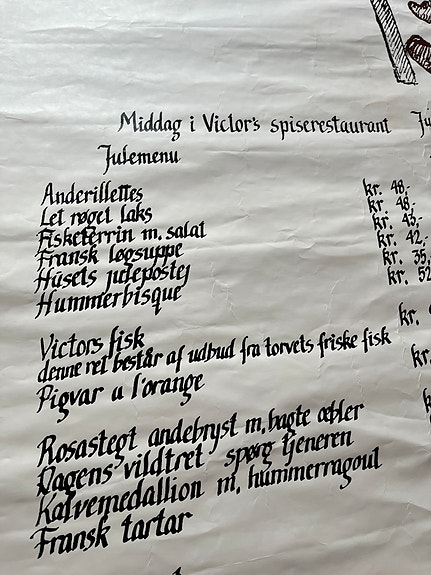 Middag i Victor's spiserestaurant
Julemenu
Anderillettes kr. 48,-
Let røget laks kr. 48,-
Fisketerrin m. salat kr. 43,-
Fransk løgsuppe kr. 42,-
Husets julepostej kr. 35,
Hummerbisque kr. 52
Victors fisk kr.
denne ret består af udbud fra torvets friske fisk
Pigvar a l'orange kr.
Rosastegt andebryst m. bagte æbler
Dagens vildtret spørg tjeneren
Kalvemedallion m. hummerragout
Fransk tartar